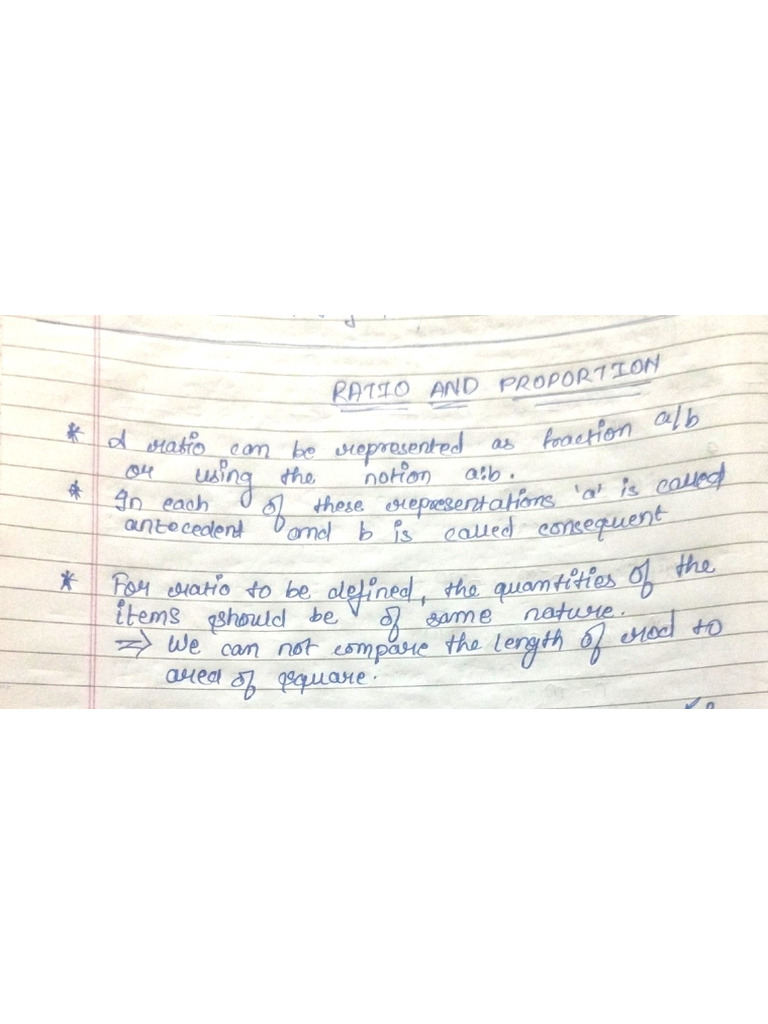 RATIO AND PROPORTION
* A ratio can be represented as fraction a/b
or using the notion a:b.
* In each of these representations 'a' is called
antecedent and b is called consequent
* For ratio to be defined, the quantities of the
items should be of same nature.
⇒ We can not compare the length of rod to
area of square.